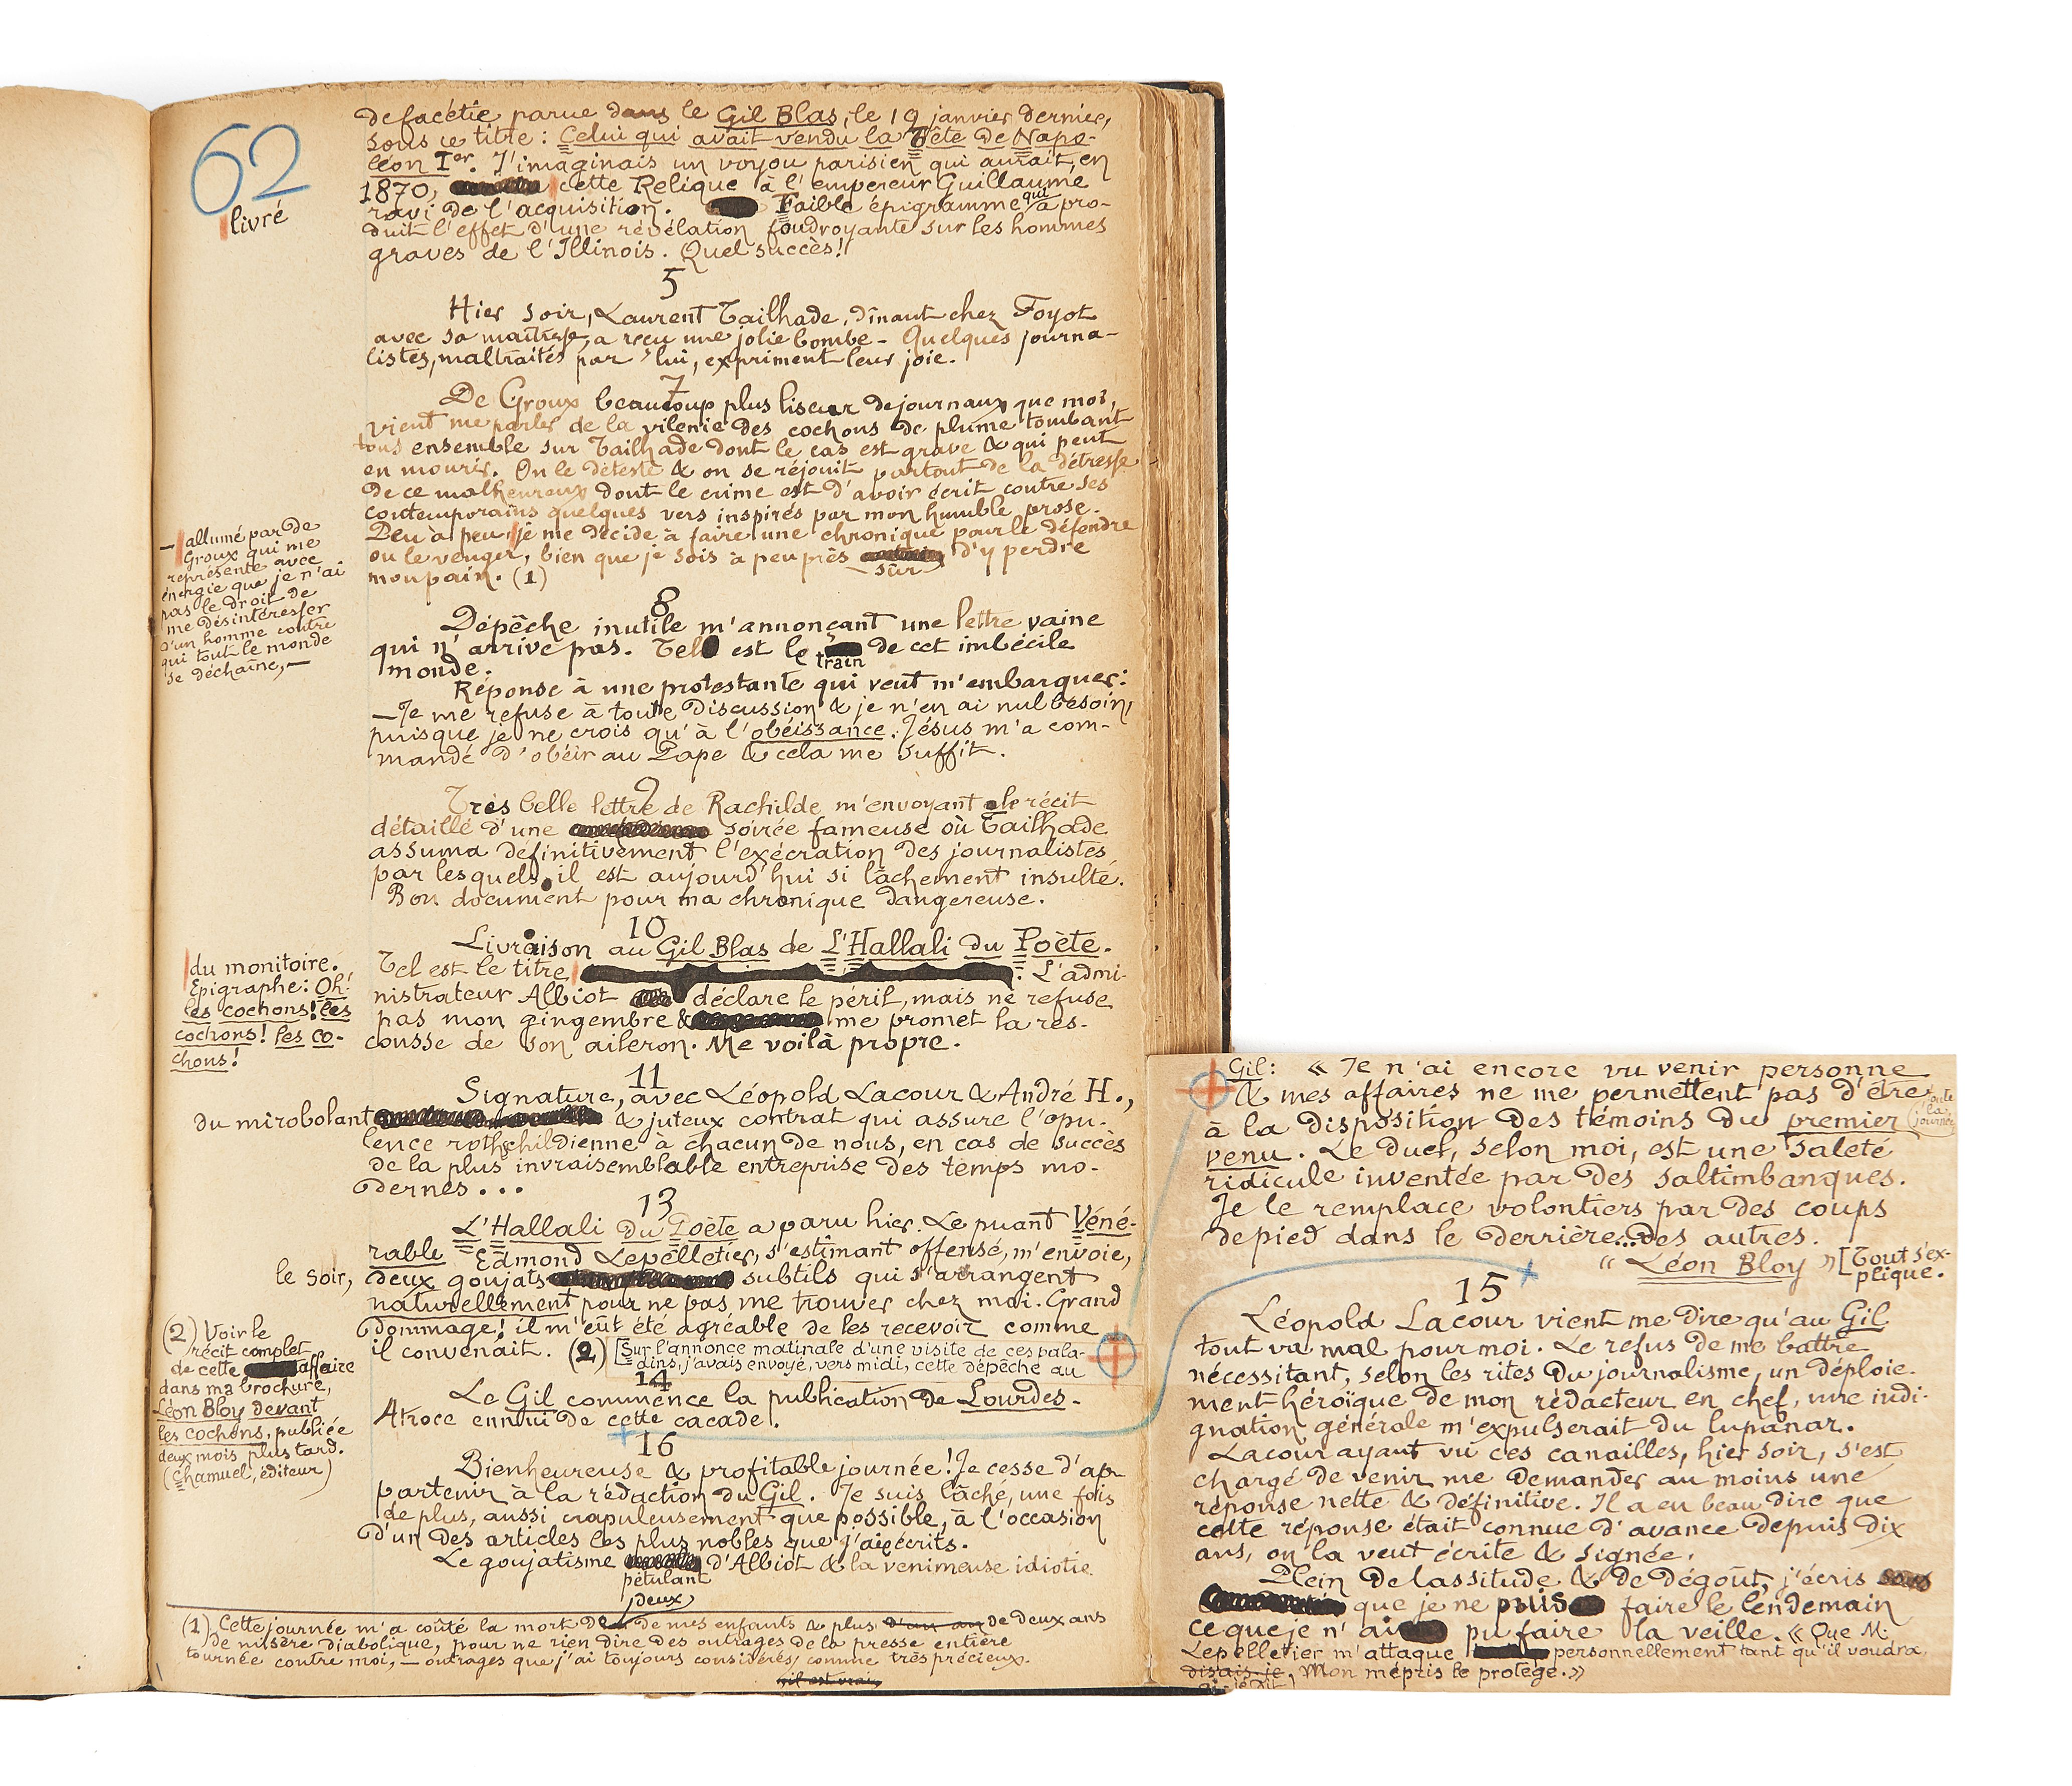 62
livré
de facétie parue dans le Gil Blas, le 19 janvier dernier,
sous ce titre : Celui qui avait vendu la Tête de Napo-
léon Ier. J'imaginais un voyou parisien qui aurait, en
1870, cette Relique à l'empereur Guillaume
ravi de l'acquisition. Faible épigramme qui a pro-
duit l'effet d'une révélation foudroyante sur les hommes
graves de l'Illinois. Quel succès!
5
Hier soir, Laurent Tailhade, dînant chez Foyot
avec sa maîtresse, a reçu une jolie bombe - Quelques journa-
listes, maltraités par lui, expriment leur joie.
7
De Groux beaucoup plus liseur de journaux que moi,
vient me parler de la vilenie des cochons de plume tombant
tous ensemble sur Tailhade dont le cas est grave & qui peut
en mourir. On le déteste & on se réjouit partout de la détresse
de ce malheureux dont le crime est d'avoir écrit contre ses
contemporains quelques vers inspirés par mon humble prose.
Peu à peu, je me décide à faire une chronique pour le défendre
ou le venger, bien que je sois à peu près sûr d'y perdre
mon pain. (1)
— allumé par de
Groux qui me
représente avec
énergie que je n'ai
pas le droit de
me désintéresser
d'un homme contre
qui tout le monde
se déchaîne, —
8
Dépêche inutile m'annonçant une lettre vaine
qui n'arrive pas. Tel est le train de cet imbécile
monde.
Réponse à une protestante qui veut m'embarquer :
— Je me refuse à toute discussion & je n'en ai nul besoin,
puisque je ne crois qu'à l'obéissance. Jésus m'a com-
mandé d'obéir au Pape & cela me suffit.
9
Très belle lettre de Rachilde m'envoyant le récit
détaillé d'une soirée fameuse où Tailhade
assuma définitivement l'exécration des journalistes
par lesquels il est aujourd'hui si lâchement insulté.
Bon document pour ma chronique dangereuse.
10
Livraison au Gil Blas de L'Hallali du Poète.
Tel est le titre . L'admi-
nistrateur Albiot déclare le péril, mais ne refuse
pas mon gingembre & me promet la res-
cousse de son aileron. Me voilà propre.
du monitoire.
Epigraphe : Oh!
les cochons! les
cochons! les co-
chons!
11
Signature, avec Léopold Lacour & André H.,
du mirobolant & juteux contrat qui assure l'opu-
lence rothschildienne à chacun de nous, en cas de succès
de la plus invraisemblable entreprise des temps mo-
dernes...
13
L'Hallali du Poète a paru hier. Le puant Véné-
rable Edmond Lepelletier, s'estimant offensé, m'envoie,
le soir, deux goujats subtils qui s'arrangent
naturellement pour ne pas me trouver chez moi. Grand
dommage! il m'eût été agréable de les recevoir comme
il convenait. (2) [Sur l'annonce matinale d'une visite de ces pala-
dins, j'avais envoyé, vers midi, cette dépêche au
(2) Voir le
récit complet
de cette affaire
dans ma brochure,
Léon Bloy devant
les cochons, publiée
deux mois plus tard.
(Chamuel, éditeur)
14
Le Gil commence la publication de Lourdes.
Atroce ennui de cette cacade.
16
Bienheureuse & profitable journée! Je cesse d'ap-
partenir à la rédaction du Gil. Je suis lâché, une fois
de plus, aussi crapuleusement que possible, à l'occasion
d'un des articles les plus nobles que j'aie écrits.
Le goujatisme pétulant d'Albiot & la venimeuse idiotie
(1) Cette journée m'a coûté la mort de deux de mes enfants & plus d'un an de deux ans
de misère diabolique, pour ne rien dire des outrages de la presse entière
tournée contre moi, — outrages que j'ai toujours considérés comme très précieux.
Gil : « Je n'ai encore vu venir personne
& mes affaires ne me permettent pas d'être toute la journée
à la disposition des témoins du premier
venu. Le duel, selon moi, est une saleté
ridicule inventée par des saltimbanques.
Je le remplace volontiers par des coups
de pied dans le derrière... des autres.
« Léon Bloy » [Tout s'ex-
plique.
15
Léopold Lacour vient me dire qu'au Gil
tout va mal pour moi. Le refus de me battre
nécessitant, selon les rites du journalisme, un déploie-
ment héroïque de mon rédacteur en chef, une indi-
gnation générale m'expulserait du lupanar.
Lacour ayant vu ces canailles, hier soir, s'est
chargé de venir me demander au moins une
réponse nette & définitive. Il a eu beau dire que
cette réponse était connue d'avance depuis dix
ans, on la veut écrite & signée.
Plein de lassitude & de dégoût, j'écris
que je ne puis faire le lendemain
ce que je n'ai pu faire la veille. « Que M.
Lepelletier m'attaque personnellement tant qu'il voudra,
disais-je, Mon mépris le protège. »
ai-je dit